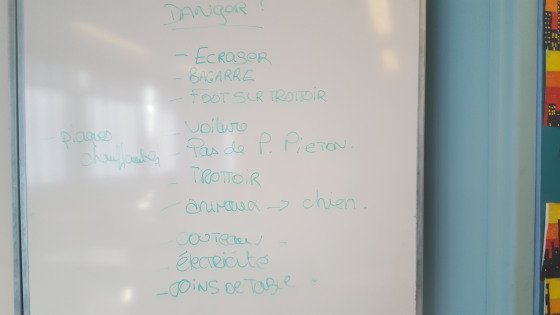 DANGER !
- ECRASER
- BAGARRE
- FOOT SUR TROTTOIR
- voiture
- Pas de P. Pieton.
- TROTTOIR
- plaques chauffantes
- animaux -> chien.
- couteau -
- électricité
- COINS DE TABLE -